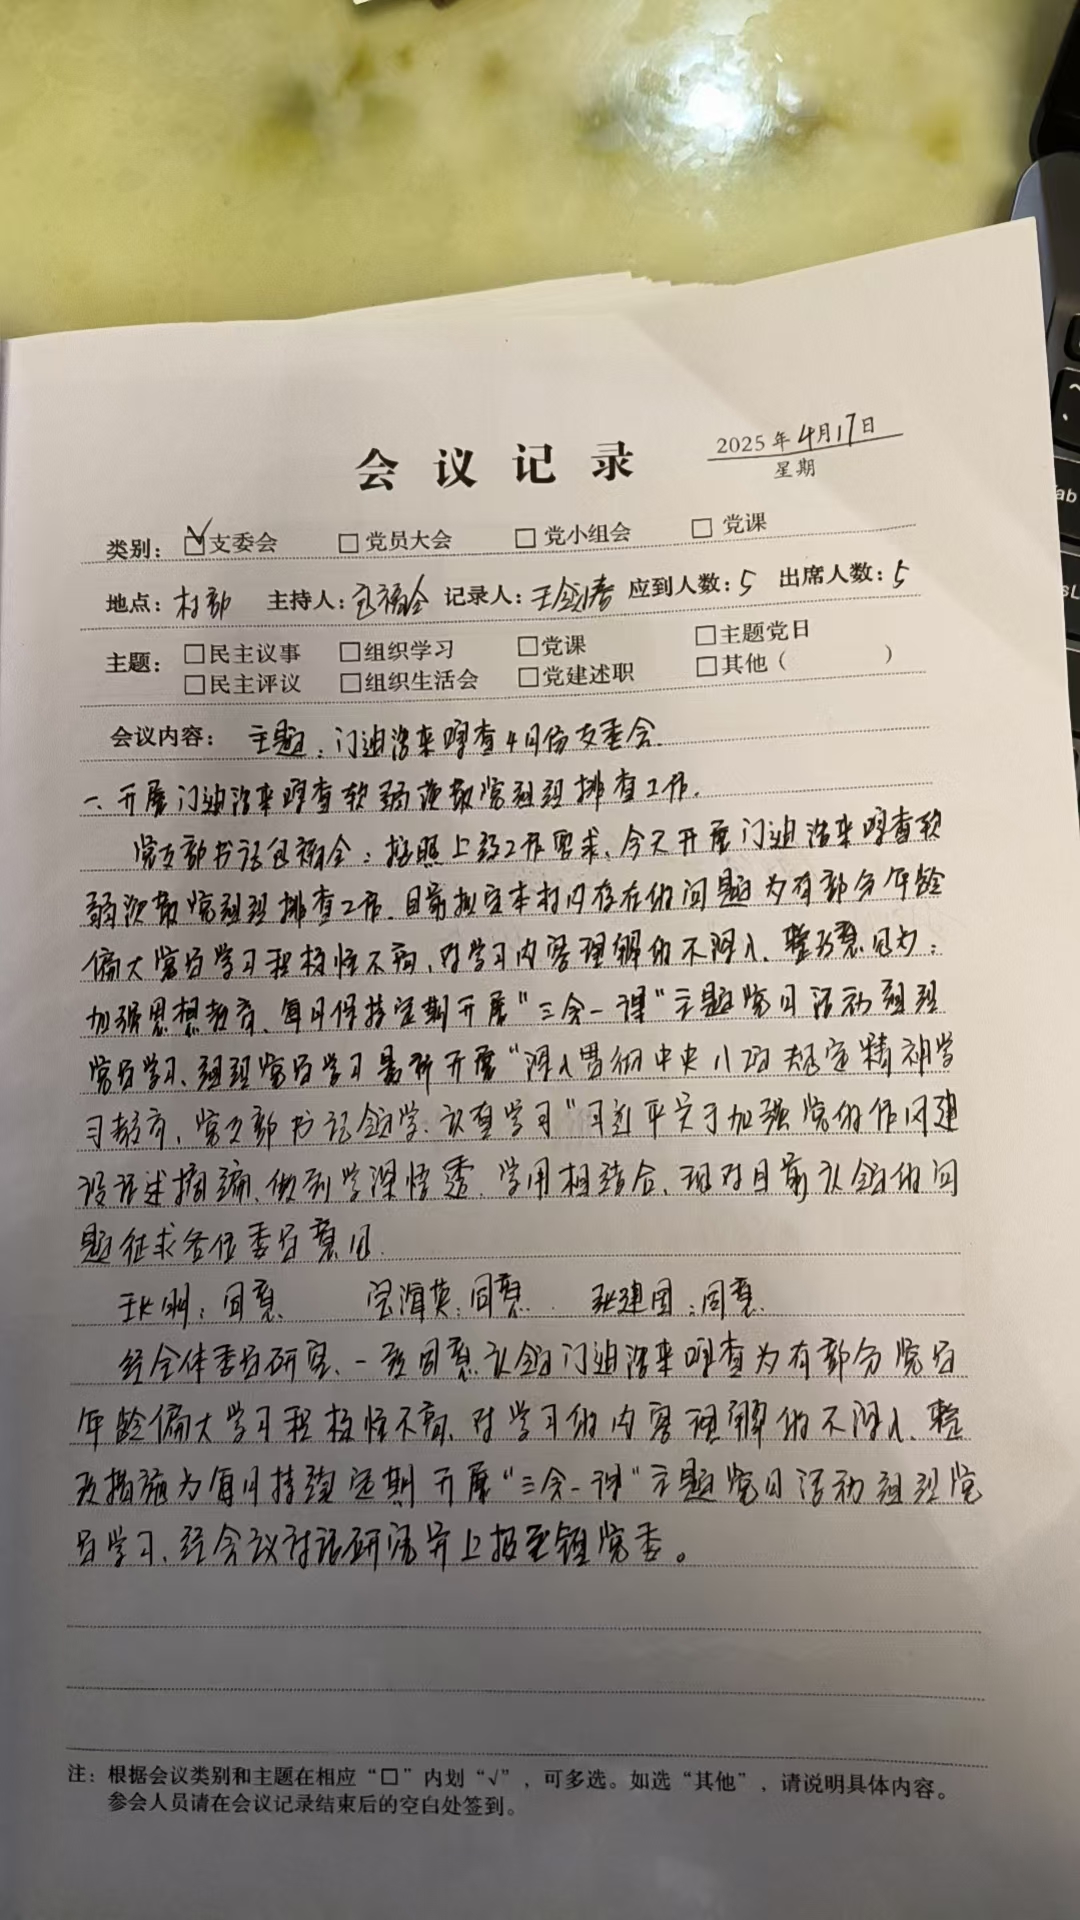 会议记录
2025年4月17日
星期
类别： ☑支委会 □党员大会 □党小组会 □党课
地点：村部 主持人：包福全 记录人：王剑春 应到人数：5 出席人数：5
主题： □民主议事 □组织学习 □党课 □主题党日
□民主评议 □组织生活会 □党建述职 □其他（ ）
会议内容： 主题：门迪浩来嘎查4月份支委会.
一、开展门迪浩来嘎查软弱涣散党组织排查工作.
党支部书记包福全：按照上级工作要求、今天开展门迪浩来嘎查软
弱涣散党组织排查工作.目前拟定本村内存在的问题为有部分年龄
偏大党员学习积极性不高、对学习内容理解的不深入、整改意见为：
加强思想教育、每月保持定期开展“三会一课”主题党日活动组织
党员学习、组织党员学习最新开展“深入贯彻中央八项规定精神学
习教育、党支部书记领学.认真学习“习近平关于加强党的作风建
设论述摘编、做到学深悟透.学用相结合.现对目前认领的问
题征求各位委员意见.
同意. 宝海英：同意. 张建国：同意.
经全体委员研究、一致同意认领门迪浩来嘎查为有部分党员
年龄偏大学习积极性不高、对学习的内容理解的不深入、整
改措施为每月持续定期开展“三会一课”主题党日活动组织党
员学习、经会议讨论研究并上报至镇党委。
注：根据会议类别和主题在相应“□”内划“√”，可多选。如选“其他”，请说明具体内容。
参会人员请在会议记录结束后的空白处签到。